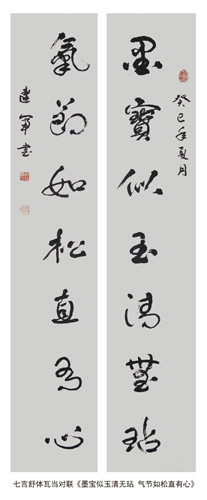 癸巳年夏月
墨寶似玉清無玷
氣節如松直有心
建軍書
七言舒体瓦当对联《墨宝似玉清无玷 气节如松直有心》